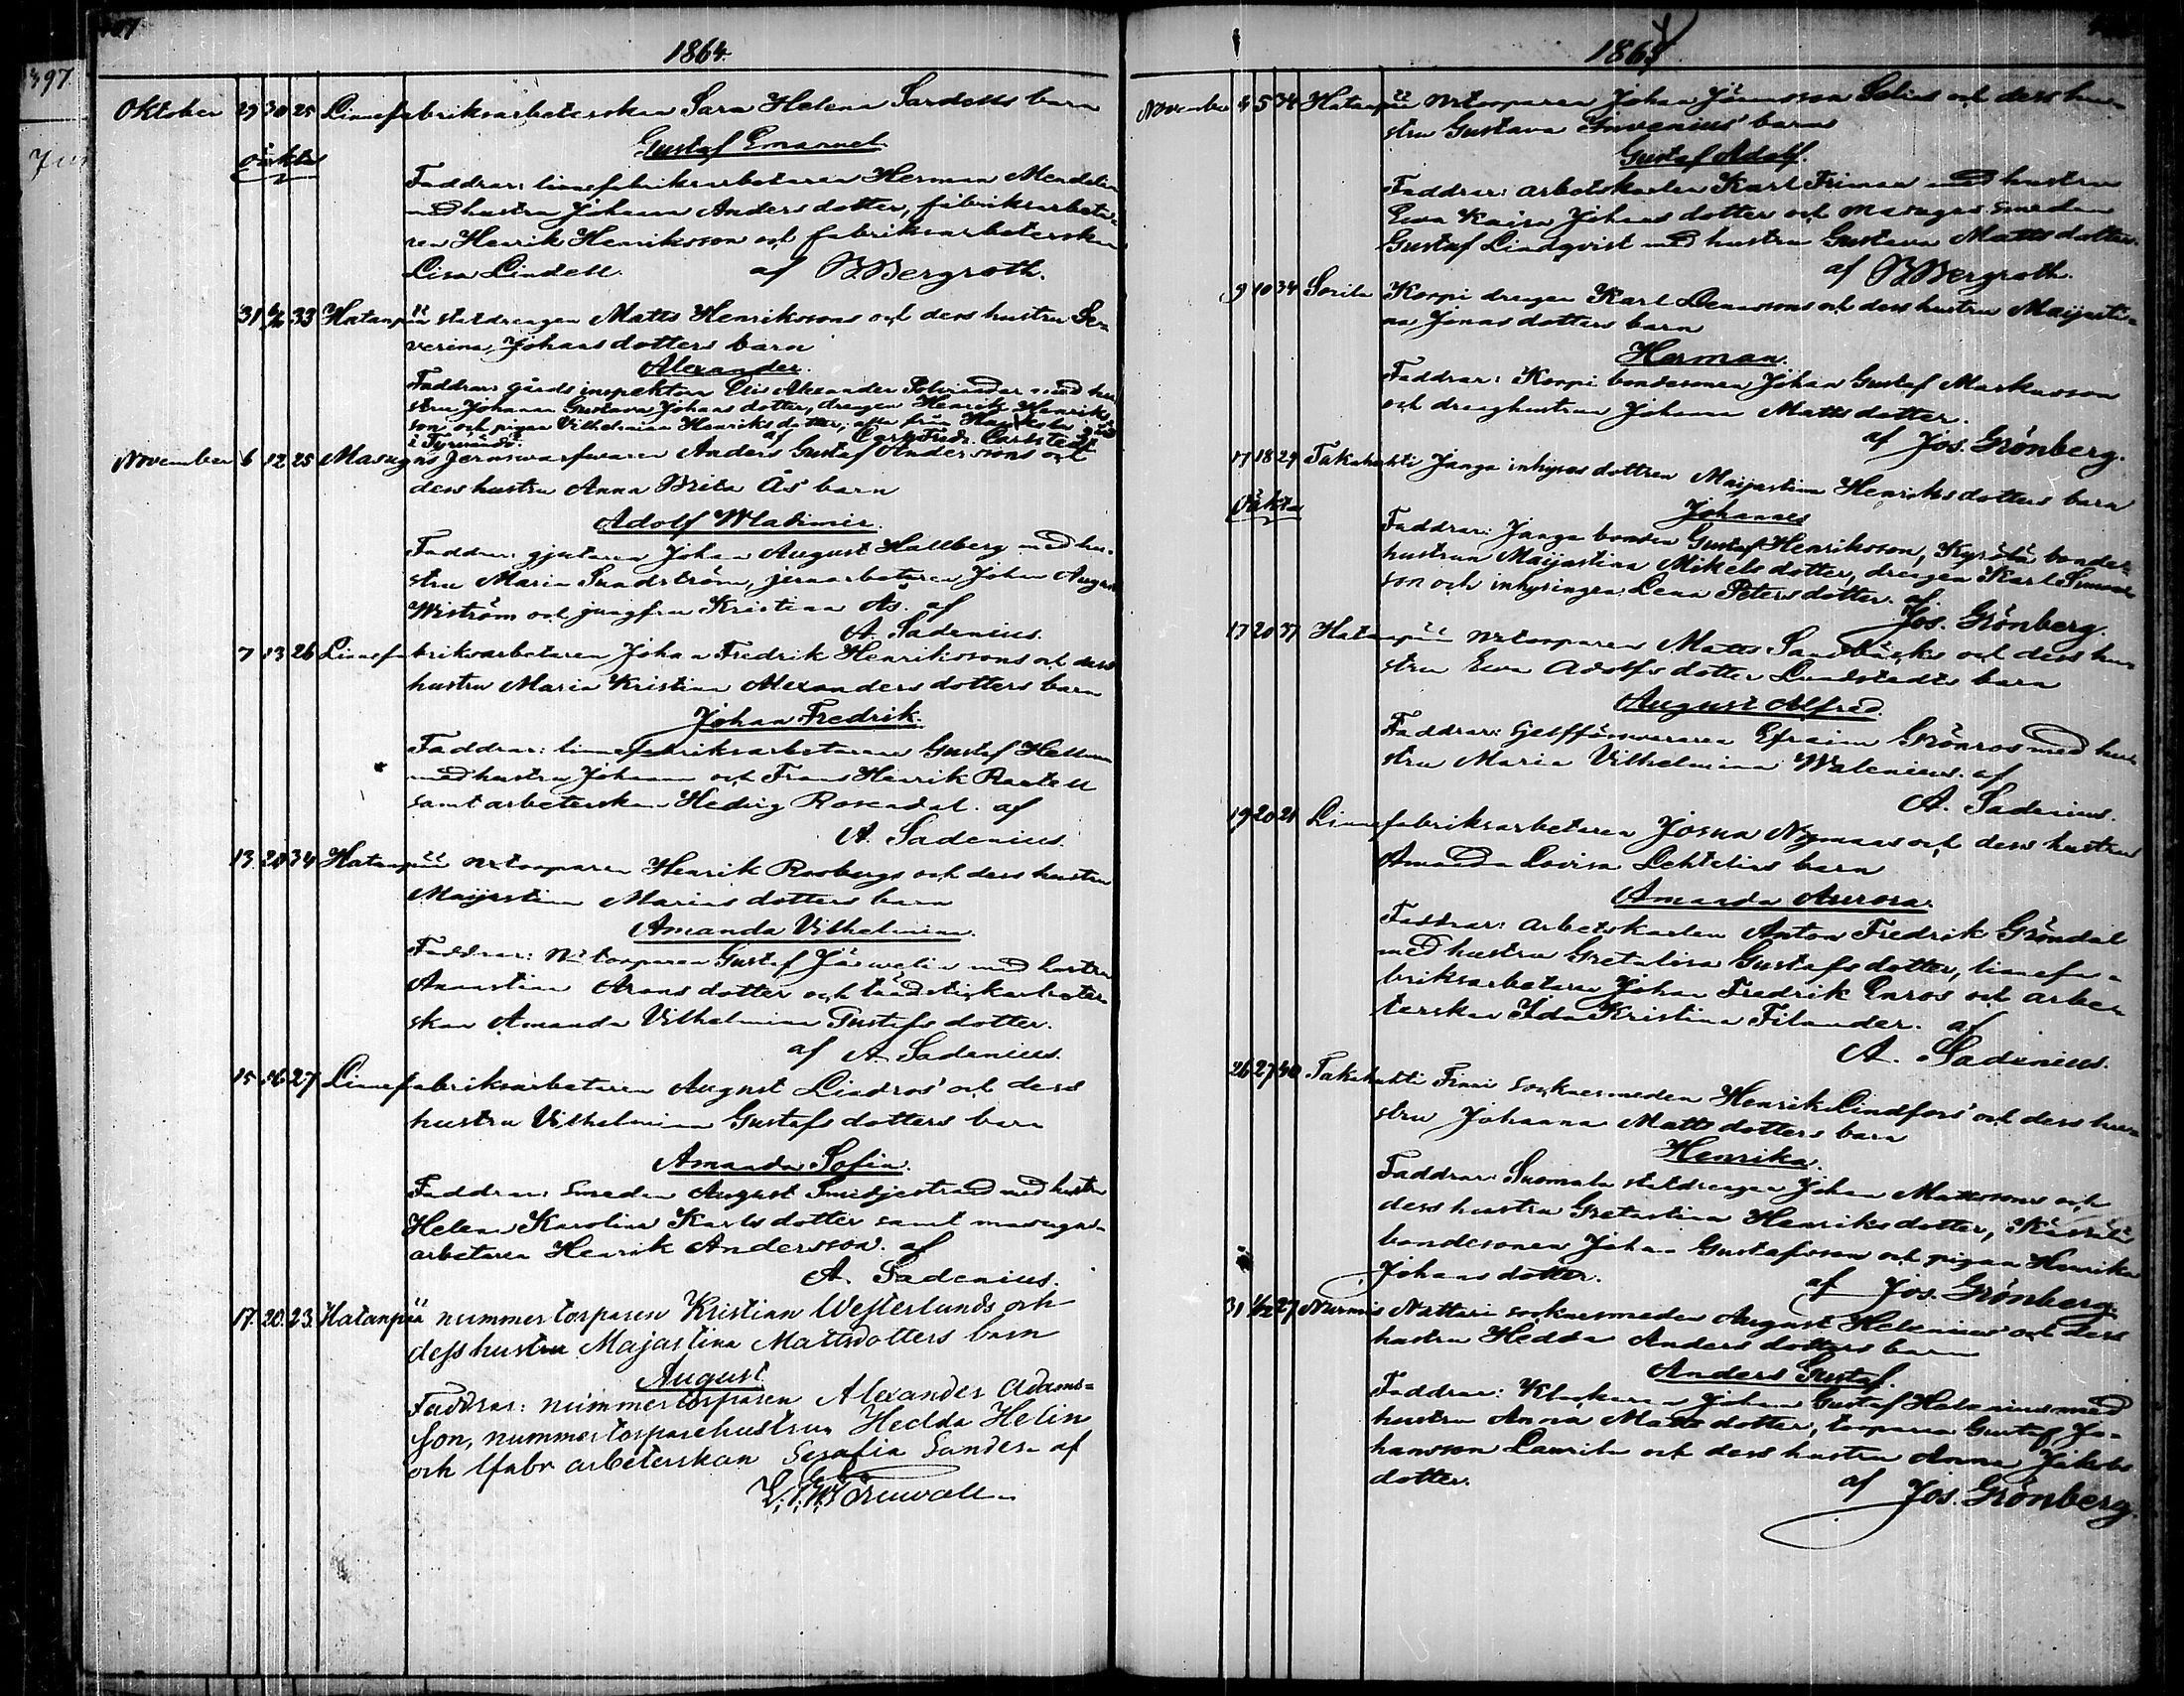 1864.
397.
Oktober 29 30 25 Linnefabriksarbeterskan Sara Helena Sardells barn
Gustaf Emanuel
oäkta
Faddrar: linnefabriksarbetaren Herman Mendelin
med hustru Johanna Anders dotter, fabriksarbeta-
ren Henrik Henriksson och fabriksarbeterskan
Lisa Lindell. af B Bergroth.
31 6/11 33 Hatanpää statdrengen Matts Henrikssons och dess hustru Se-
verina Johans dotters barn
Alexander.
Faddrar: gårds inspektoren Alexander med hu-
stru Johanna Gustava Johans dotter, drengen Henrik Henriks-
son och pigan Vilhelmina Henriks dotter, alla från
i Tyrvändö. af Carl Fredr. Carlstedt
November 6 12 25 Masugns jernsvarfvaren Anders Gustaf Anderssons och
dess hustru Anna Brita Ås barn
Adolf Wladimir.
Faddrar: gjutaren Johan August Hallberg med hu-
stru Maria Sundström, jernarbetaren Johan August
Wiström och jungfru Kristina Ås. af
A. Sadenius.
7 13 26 Linnefabriksarbetaren Johan Fredrik Henrikssons och dess
hustru Maria Kristina Alexanders dotters barn
Johan Fredrik.
Faddrar: linnefabriksarbetarene Gustaf Hellman
med hustru Johanna och Frans Henrik Rastell
samt arbeterskan Hedvig Rosendal. af
A. Sadenius.
13. 20 34 Hatanpää Nr torparen Henrik Rosbergs och dess hustru
Maijastina Marias dotters barn
Amanda Vilhelmina.
Faddrar: Nr torparen Gustaf Järvelin med hustru
Annastina Arons dotter och tändstickarbeter-
skan Amanda Vilhelmina Gustafs dotter.
af A. Sadenius.
15 16 27 Linnefabriksarbetaren August Lindros' och dess
hustru Vilhelmina Gustafs dotters barn
Amanda Sofia.
Faddrar: Smeden August Smidjestrand med hustru
Helena Karolina Karls dotter samt masugns-
arbetaren Henrik Andersson. af
A. Sadenius.
17. 20. 23. Hatanpää nummertorparen Kristian Westerlunds och
dess hustru Majastina Mattsdotters barn
August.
Faddrar: nummertorparen Alexander Adams-
son, nummertorparehustrun Hedda Helin
och lfabr arbeterskan Serafia Sander. af
November 4 5 34 Hatanpää Nr torparen Johan Jöransson Selins och dess hu-
stru Gustava Invenius' barn
Gustaf Adolf.
Faddrar: arbetskarlen Karl Friman med hustru
Ewa Kaisa Johans dotter och masugns smeden
Gustaf Lindqvist med hustru Gustava Matts dotter.
af B Bergroth.
9 10 34 Sorila Korpi drengen Karl Denassons och dess hustru Maijasti-
na Jonas dotters barn
Herman.
Faddrar: Korpi bondesonen Johan Gustaf Markusson
och drenghustrun Johanna Matts dotter.
af Jos. Grönberg.
17 18 29 Takahuhti Janga inhyses dottren Maijastina Henriks dotters barn
oäkta
Johannes
Faddrar: Janga bonden Gustaf Henriksson, Kyrölä bonde-
hustrun Maijastina Mikels dotter, drengen Karl
son och inhysingen Lena Peters dotter. af
Jos. Grönberg.
17 20 37 Hatanpää Nr torparen Matts Sandbäcks och dess hu-
stru Ewa Adolfs dotter Lundstedts barn
August Alfred.
Faddrar: Gelfförsvararen Efraim Grönros med hu-
stru Maria Vilhelmina Walenius. af
A. Sadenius.
19 20 21 Linnefabriksarbetaren Josua Nymans och dess hustrus
Amanda Lovisa Lehtelins barn
Amanda Aurora.
Faddrar: arbetskarlen Anton Fredrik Gröndal
med hustru Gretalisa Gustafs dotter, linnefa-
briksarbetaren Johan Fredrik Enros och arbe-
terskan Ida Kristina Filander. af
A. Sadenius.
26 27 40 Takahuhti Finni socknesmeden Henrik Lindfors' och dess hu-
stru Johanna Matts dotters barn
Henrika.
Faddrar: Suomala statdrengen Johan Mattssons och
dess hustru Gretastina Henriks dotter,
bondesonen Johan Gustafsson och pigan Henrika
Johans dotter. af Jos. Grönberg.
31 1/12 27 Nurmis Nattari socknesmeden August Helenius' och dess
hustru Hedda Anders dotters barn
Anders Gustaf.
Faddrar: Klockaren Johan Gustaf Helenius med
hustru Anna Matts dotter, torparen Gustaf Jo-
hansson Laurila och dess hustru Anna Jakobs
dotter. af Jos. Grönberg.